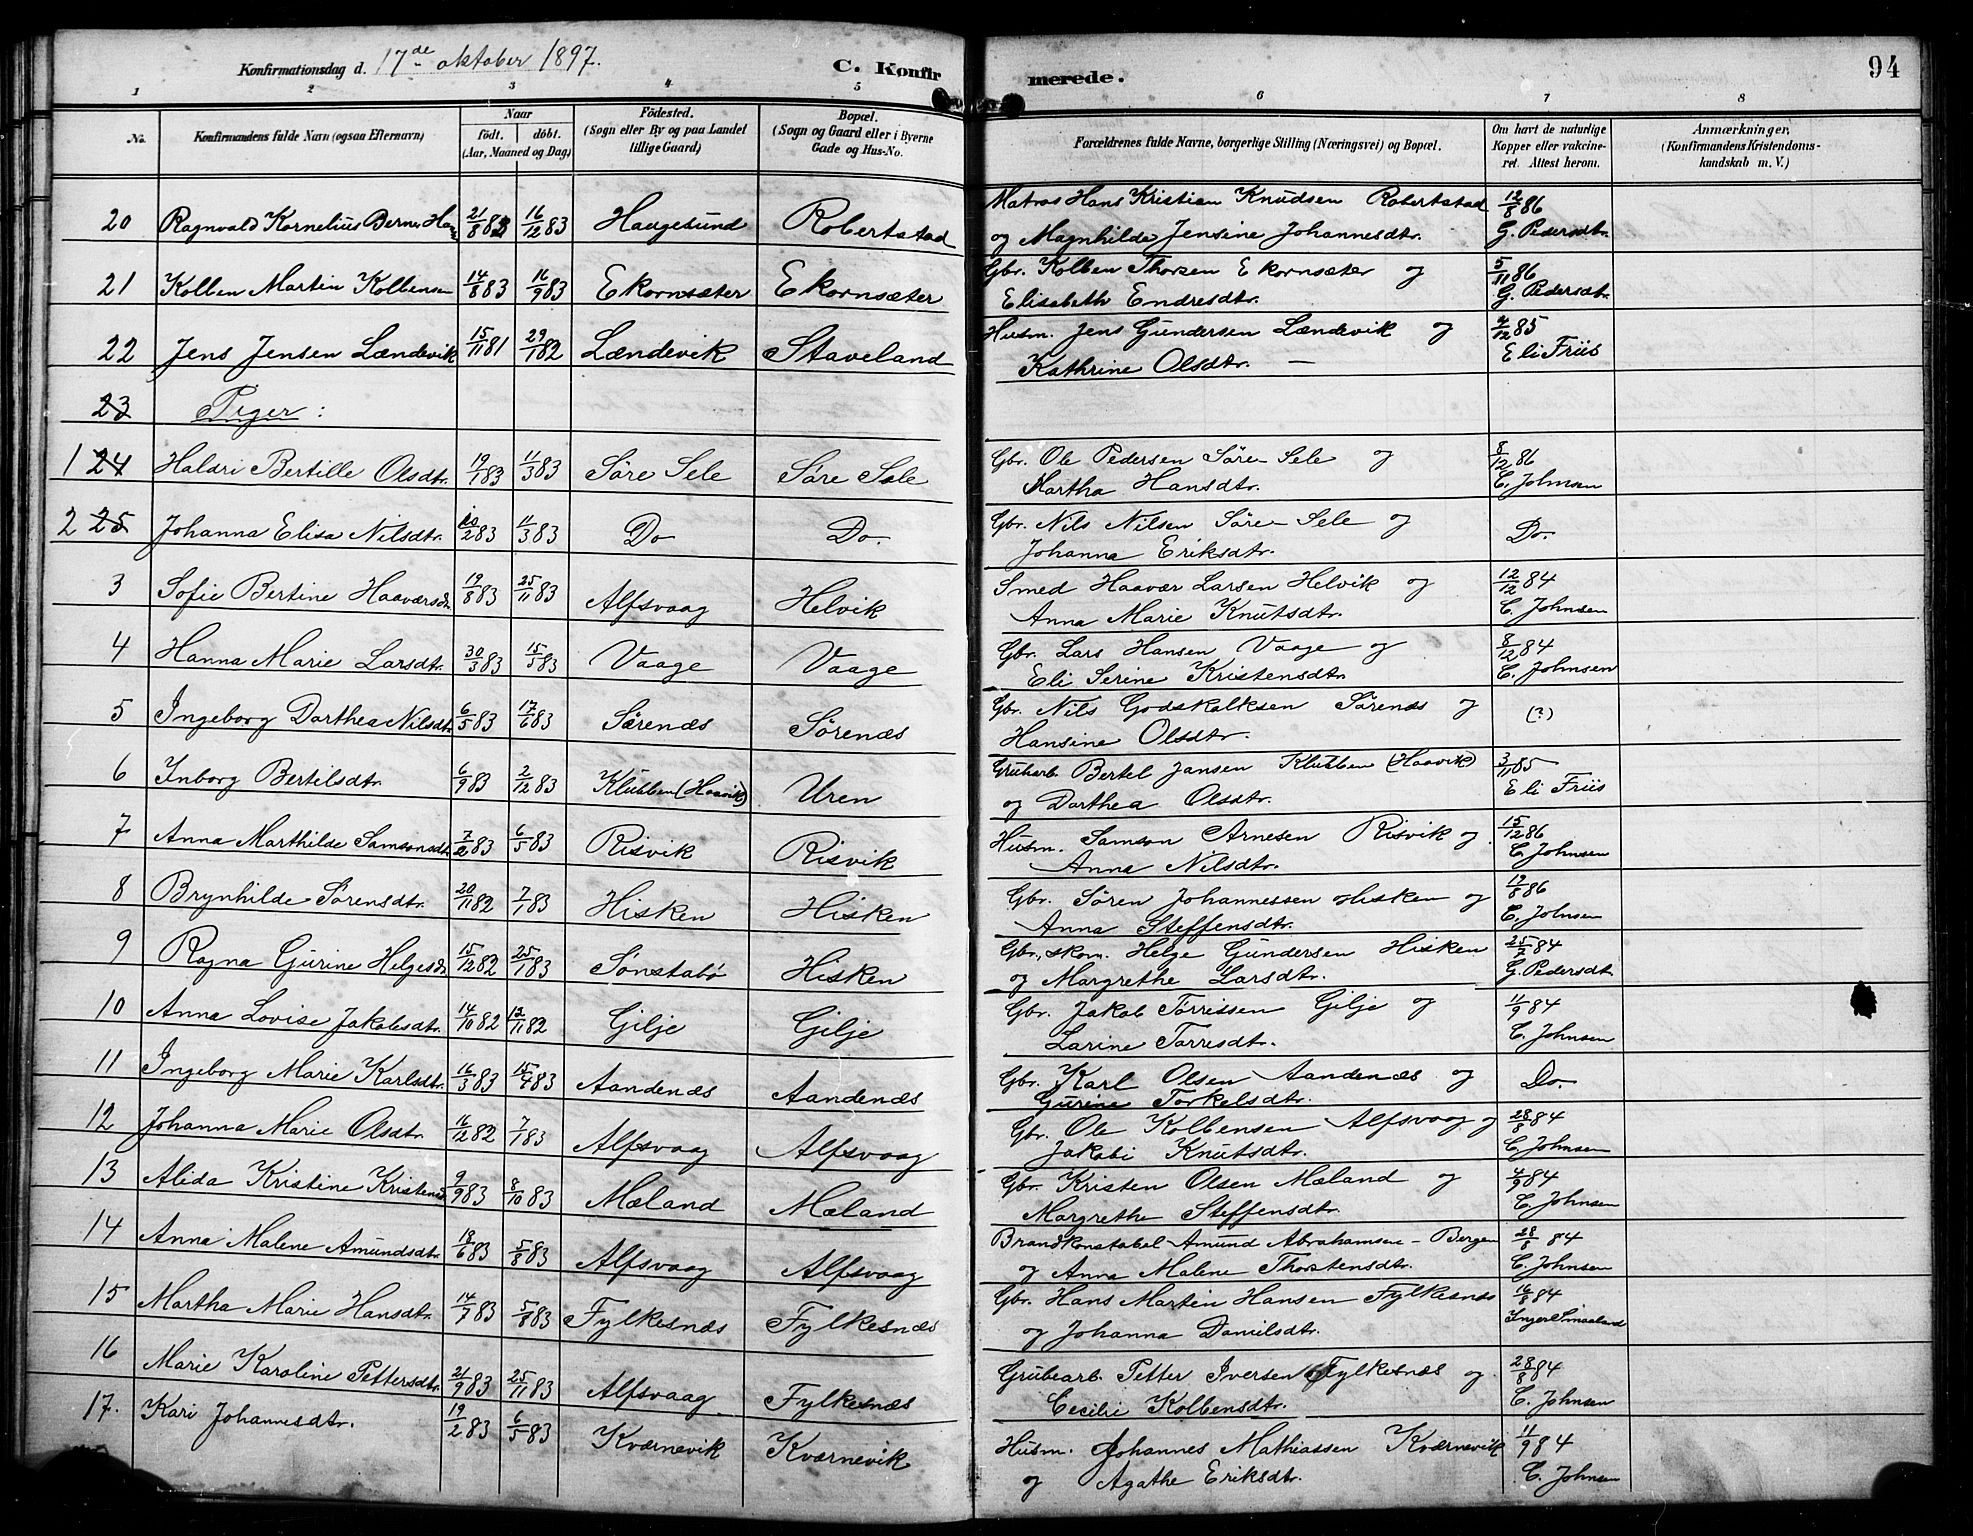 Konfirmationsdag d. 17de oktober 1897.
C. Konfirmerede.
94
1 2 3 4 5 6 7 8
No.
Konfirmandens fulde Navn (ogsaa Efternavn)
Naar
født. døbt.
(Aar, Maaned og Dag)
Fødested.
(Sogn eller By og paa Landet
tillige Gaard)
Bopæl.
(Sogn og Gaard eller i Byerne
Gade og Hus-No.
Forældrenes fulde Navne, borgerlige Stilling (Næringsvei) og Bopæl.
Om havt de naturlige
Kopper eller vakcine-
ret. Attest herom.
Anmærkninger,
(Konfirmandens Kristendoms-
kundskab m. V.)
20 Ragnvald Kornelius Berner 21/8 16/12 83 Haugesund Robertstad Matros Hans Kristian Knudsen Robertstad 12/8 86
og Magnhilde Jensine Johannesdtr. G. Pedersdtr.
21 Kolben Martin Kolbensen 14/8 83 16/9 83 Ekornsæter Ekornsæter Gbr. Kolben Thorsen Ekornsæter og 5/11 86
Elisabeth Endresdtr. G. Pedersdtr.
22 Jens Jensen Lændevik 15/11 81 29/1 82 Lændevik Staveland Husm. Jens Gundersen Lændevik og 4/12 85
Kathrine Olsdtr. — Eli Friis
23 Piger :
1 24 Haldri Bertille Olsdtr. 19/1 83 11/3 83 Søre Sele Søre Sele Gbr. Ole Pedersen Søre Sele og 8/12 86
Martha Hansdtr. C. Johnsen
2 25 Johanna Elisa Nilsdtr. 10/2 83 11/3 83 Do Do. Gbr. Nils Nilsen Søre Sele og Do.
Johanna Eriksdtr.
3 Sofie Bertine Haaversdr 19/8 83 25/11 83 Alfsvaag Helvik Smed Haavar Larsen Helvik og 12/12 84
Anna Marie Knutsdtr. C. Johnsen
4 Hanna Marie Larsdtr. 30/3 83 15/5 83 Vaage Vaage Gbr. Lars Hansen Vaage og 8/12 84
Eli Serine Kristensdtr. C. Johnsen
5 Ingeborg Dorthea Nilsdtr 6/5 83 17/6 83 Sørenæs Sørenæs Gbr. Nils Godskalksen Sørenæs og (?)
Hansine Olsdtr.
6 Inborg Bertilsdtr. 6/9 83 2/12 83 Klubben (Haavik) Uren Grubarb. Bertel Jansen Klubben (Haavik) 3/11 85
og Dorthea Olsdtr. Eli Friis
7 Anna Marthilde Samsonsdtr 7/2 83 6/5 83 Risvik Risvik Husm. Samson Arnesen Risvik og 15/12 86
Anna Nilsdtr. C. Johnsen
8 Brynhilde Sørensdtr. 20/11 82 7/1 83 Hisken Hisken Gbr. Søren Johannessen Hisken og 19/8 86
Anna Steffensdtr. C. Johnsen
9 Ragna Gurine Helgesdr 15/12 82 25/1 83 Sønstabø Hisken Gbr., skom. Helge Gundersen Hisken 25/7 84
og Margrethe Larsdtr. G. Pedersdt
10 Anna Lovise Jakobsdtr. 14/10 82 12/11 82 Gilje Gilje Gbr. Jakob Tørrissen Gilje og 11/9 84
Larine Tørresdtr. C. Johnsen
11 Ingeborg Marie Karlsdtr. 16/3 83 15/4 83 Aandenæs Aandenæs Gbr. Karl Olsen Aandenæs og Do.
Gurine Torkelsdtr.
12 Johanna Marie Olsdtr. 16/12 82 7/1 83 Alfsvaag Alfsvaag Gbr. Ole Kolbensen Alfsvaag og 28/8 84
Jakobi Knutsdtr. C. Johnsen
13 Alida Kristine Kristensdr 9/9 83 8/10 83 Mæland Mæland Gbr. Kristen Olsen Mæland og 4/9 84
Margrethe Steffensdtr. C. Johnsen
14 Anna Malene Amundsdtr. 18/6 83 5/8 83 Alfsvaag Alfsvaag Brandkonstabel Amund Abrahamsen - Bergen 28/8 84
og Anna Malene Thorstensdtr. C. Johnsen
15 Martha Marie Hansdtr. 14/7 83 5/8 83 Fylkesnæs Fylkesnæs Gbr. Hans Martin Hansen Fylkesnæs 16/8 84
og Johanna Danielsdtr.
16 Marie Karoline Pettersdtr. 21/9 83 25/11 83 Alfsvaag Fylkesnæs Grubearb. Petter Iversen Fylkesnæs og 28/8 84
Cecilie Kolbensdtr. C. Johnsen
17. Kari Johannesdtr. 19/2 83 6/5 83 Kværnevik Kværnevik Husm. Johannes Mathiassen Kværnevik 11/9 84
og Agathe Eriksdtr. C. Johnsen